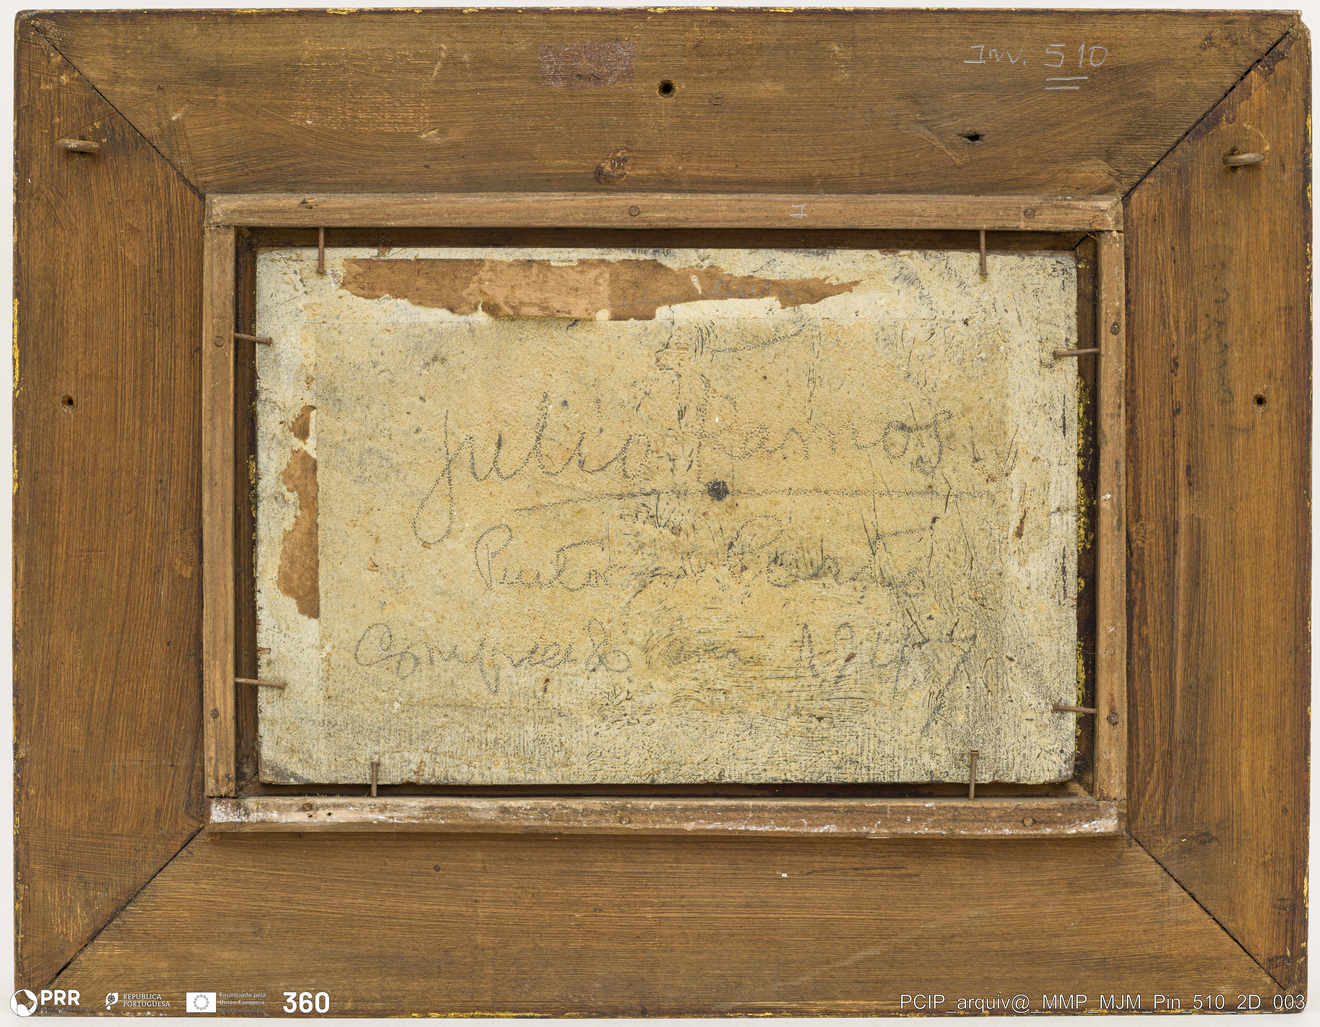 Inv. 510
I
Julio Ramos
Pintor
Comprado em 1947
PRR
REPÚBLICA PORTUGUESA
Financiado pela União Europeia
360
PCIP_arquiv@_MMP_MJM_Pin_510_2D_003